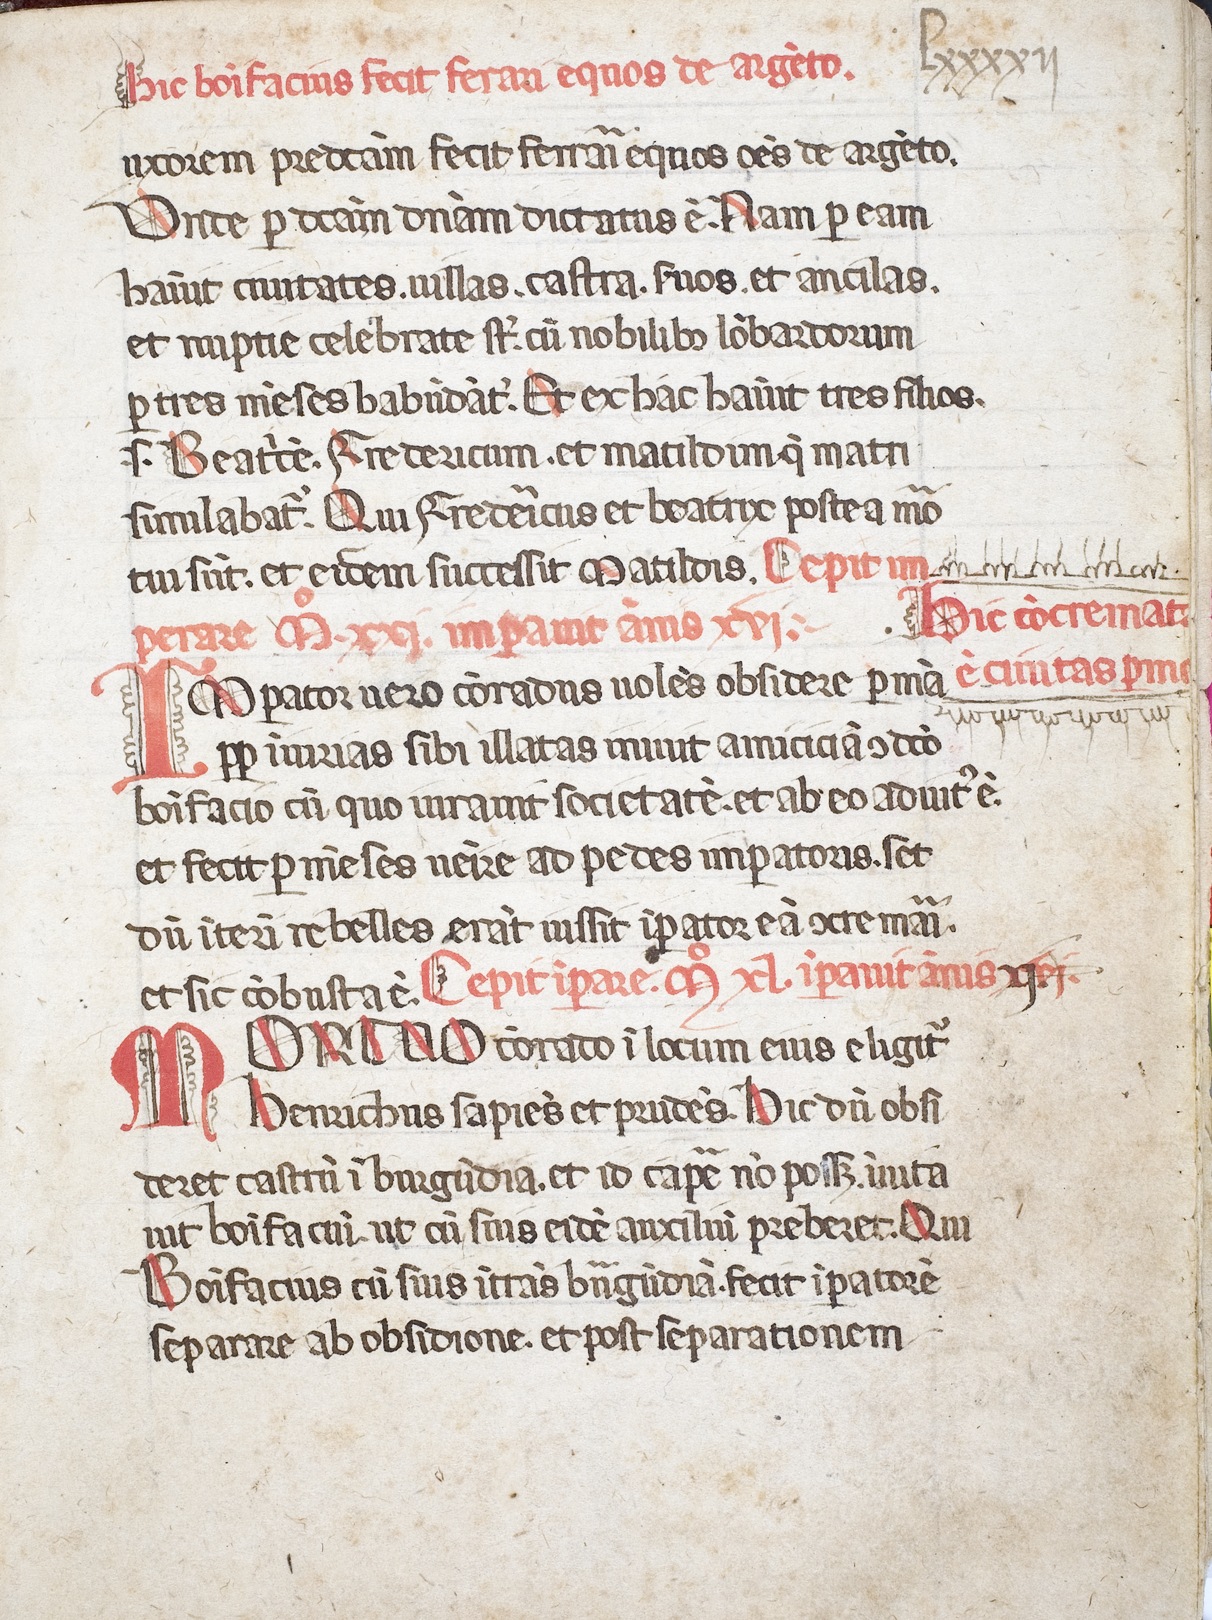 Lxxxxii
Hic boifacius fecit ferari equos de argēto.
uxorem predcām fecit ferrari equos oēs de argēto.
Vnde ꝑ dcām dnām dictatus ē. Nam ꝑ eam
haūit ciuitates. uillas. castra. suos. et ancilas.
et nuptie celebrate st̄. cū nobilibꝫ lōbardorum
ꝑ tres mēses habūdāt᷑. Et ex hac haūit tres filios.
.s. Beat͛cē. Fredericum. et matildim. q̄ matri
similabat᷑. Qui Frederīcus et beatrix postea mō
tui sūt. et eidem successit Matildis. Cepit im
perare Mͦ. xxj. imꝑauit ānis xvj.
Hic cōcremata
ē ciuitas ꝑme
IMꝑator uero cōradus uolēs obsidere ꝑmā
ꝓꝑ iīurias sibi illatas iniuit amiciciā ↄ dcō
boifacio cū quo iurauit societatē. et ab eo adiut᷑ ē.
et fecit ꝑmēses uēire ad pedes imꝑatoris. set
dū iterū rebelles erāt iussit iꝑator eā ↄcremāi.
et sic cōbusta ē. Cepit iꝑare. Mͦ xl. iꝑauit ānis
MORTVO cōrado ī locum eius eligit᷑
Henrichus sapiēs et prudēs. Hic dū obsi
deret castrū ī burgūdia. et id capē nō possꝫ. īuita
uit boifaciū. ut cū suis eidē auxiliū preberet. Qui
Boifacius cū suis ītrās burgūdiā. fecit iꝑatorē
separare ab obsidione. et post separationem